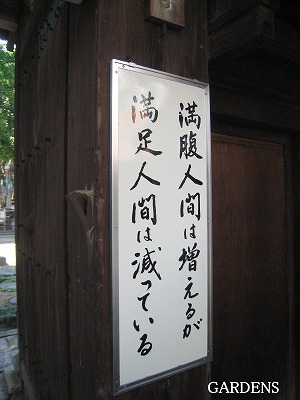 満腹人間は増えるが
満足人間は減っている
GARDENS